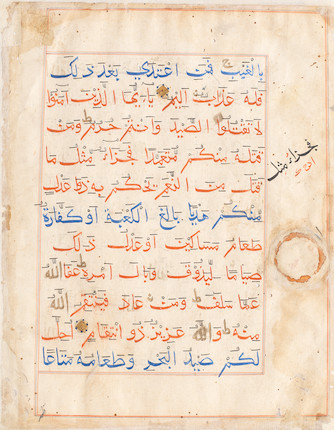 بِالْغَيْبِ فَمَنِ اعْتَدَىٰ بَعْدَ ذَٰلِكَ
فَلَهُ عَذَابٌ أَلِيمٌ يَٰٓأَيُّهَا الَّذِينَ آمَنُوا
لَا تَقْتُلُوا الصَّيْدَ وَأَنْتُمْ حُرُمٌ وَمَنْ
قَتَلَهُ مِنْكُمْ مُتَعَمِّدًا فَجَزَاءُ مِثْلِ مَا
قَتَلَ مِنَ النَّعَمِ يَحْكُمُ بِهِ ذَوَا عَدْلٍ
مِنْكُمْ هَدْيًا بَالِغَ الْكَعْبَةِ أَوْ كَفَّارَةٌ
طَعَامُ مَسَاكِينَ أَوْ عَدْلُ ذَٰلِكَ
صِيَامًا لِيَذُوقَ وَبَالَ أَمْرِهِ عَفَا اللَّهُ
عَمَّا سَلَفَ وَمَنْ عَادَ فَيَنْتَقِمُ اللَّهُ
مِنْهُ وَاللَّهُ عَزِيزٌ ذُو انْتِقَامٍ أُحِلَّ
لَكُمْ صَيْدُ الْبَحْرِ وَطَعَامُهُ مَتَاعًا
فجزاء مثل